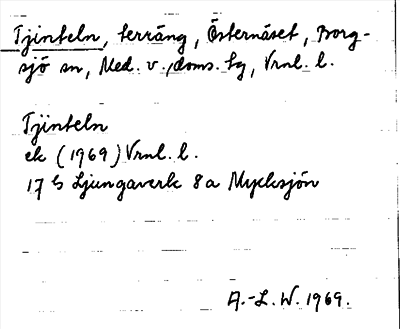 Tjinteln, terräng, Östernäset, Borg-
sjö sn, Med. v., doms. hg, Vrnl. l.
Tjinteln
ek (1969) Vrnl. l.
17 G Ljungaverk 8a Mycksjön
A.-L. W. 1969.